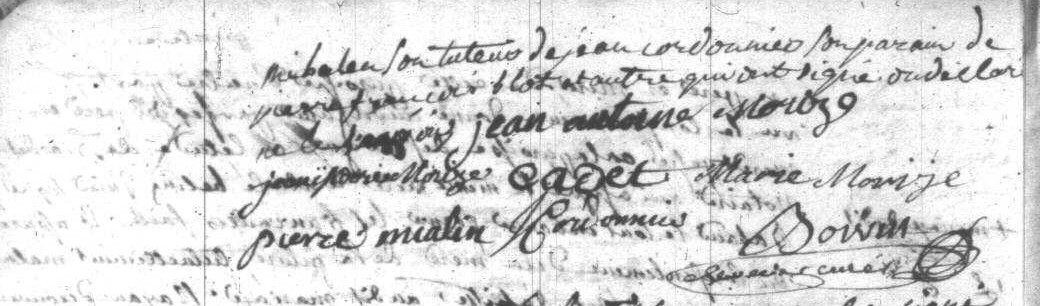 son tuteur de jean cordonnier son parain de
pierre francois blot et autre qui ont signé ou declar
ne le jean antoine Morize
Morize cadet Marie Morize
pierre mialin Cordonnier Boivin
curé